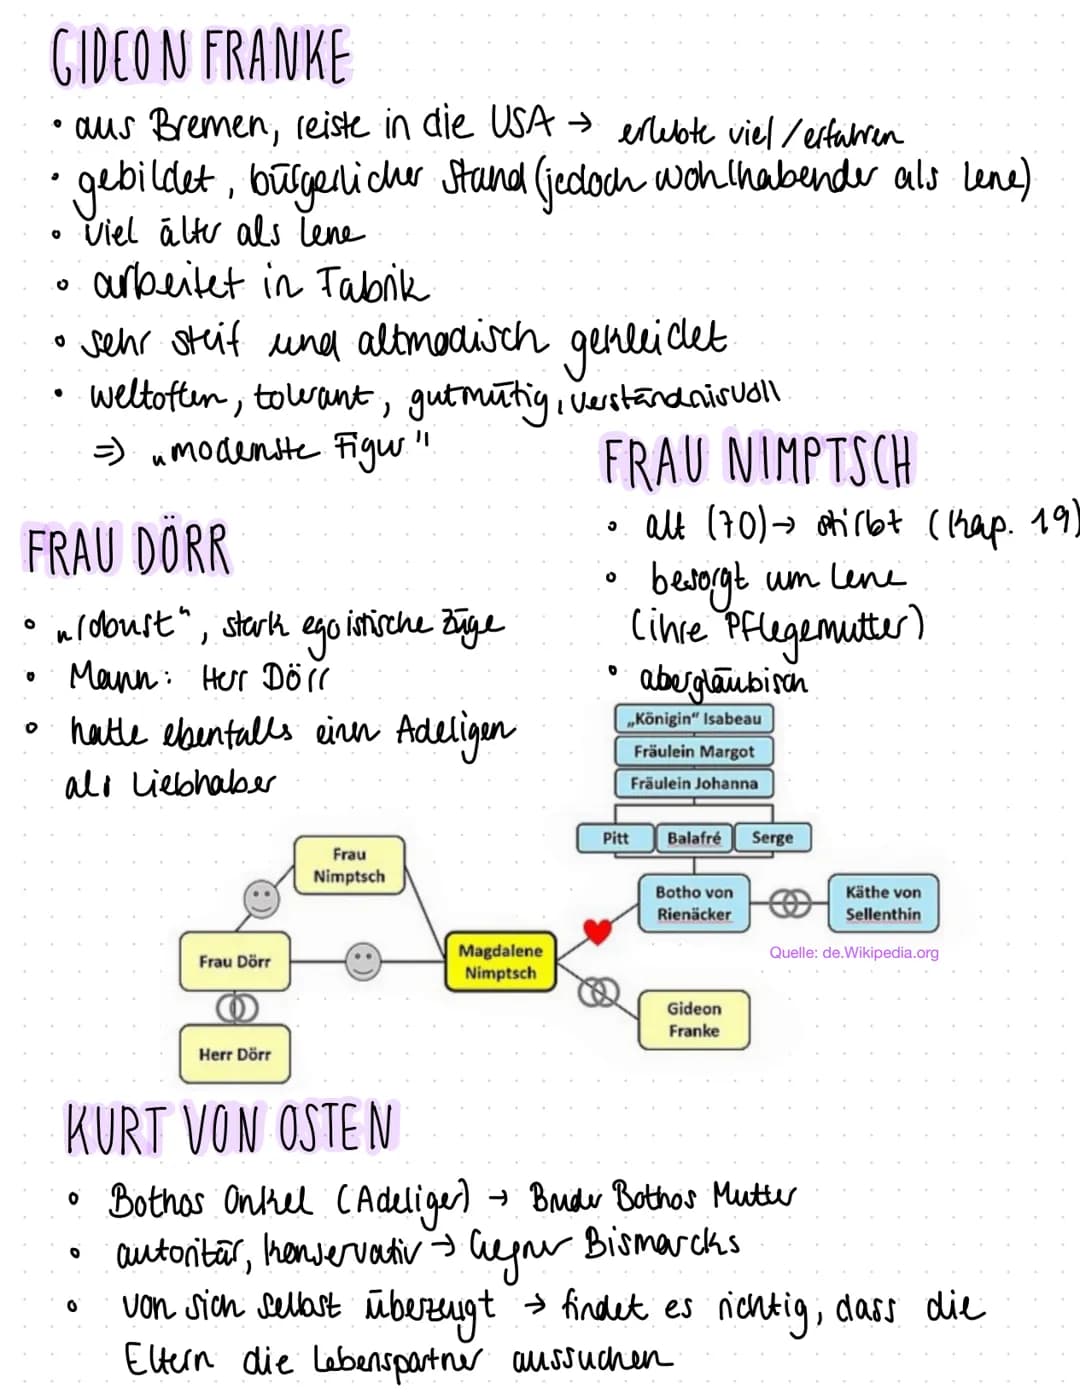 GIDEON FRANKE
• aus Bremen, reiste in die USA → erlebte viel / erfahren
• gebildet, bürgerlicher Stand (jedoch wohlhabender als Lene)
• viel älter als Lene
• arbeitet in Fabrik
• sehr steif und altmodisch gekleidet
• weltoffen, tolerant, gutmütig, verständnisvoll
⇒ „modernste Figur"
FRAU NIMPTSCH
• alt (70) → stirbt (Kap. 19)
• besorgt um Lene
(ihre Pflegemutter)
• abergläubisch
FRAU DÖRR
• „robust", stark egoistische Züge
• Mann: Herr Dörr
• hatte ebenfalls einen Adeligen
als Liebhaber
„Königin" Isabeau
Fräulein Margot
Fräulein Johanna
Pitt
Balafré
Serge
Frau
Nimptsch
Botho von
Rienäcker
Käthe von
Sellenthin
Frau Dörr
Magdalene
Nimptsch
Quelle: de.Wikipedia.org
Gideon
Franke
Herr Dörr
KURT VON OSTEN
• Bothos Onkel (Adeliger) → Bruder Bothos Mutter
• autoritär, konservativ → Gegner Bismarcks
• von sich selbst überzeugt → findet es richtig, dass die
Eltern die Lebenspartner aussuchen